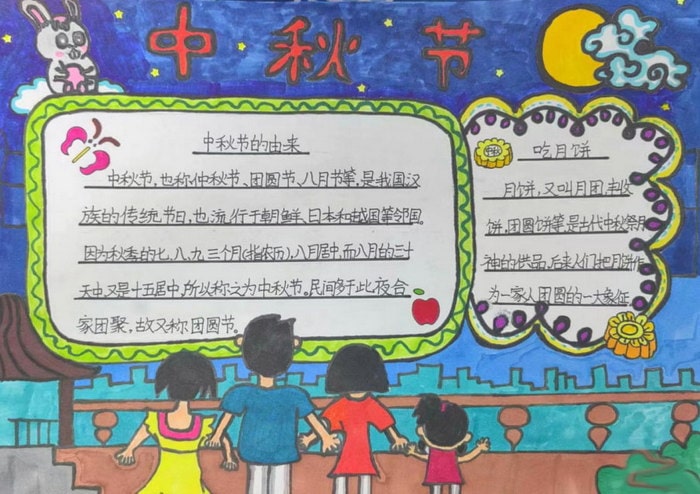 中秋节
中秋节的由来
中秋节,也称仲秋节、团圆节、八月节等,是我国汉
族的传统节日,也流行于朝鲜、日本和越国等邻国。
因为秋季的七、八、九、三个月(指农历),八月居中,而八月的三十
天中又是十五居中,所以称之为中秋节。民间多于此夜合
家团聚,故又称团圆节。
吃月饼
月饼,又叫月团,丰收
饼,团圆饼等,是古代中秋祭月
神的供品,后来人们把月饼作
为一家人团圆的一大象征。